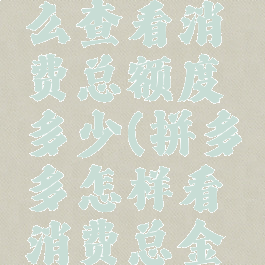 么查看消
费总额度
多少(拼多
多怎样看
消费总金